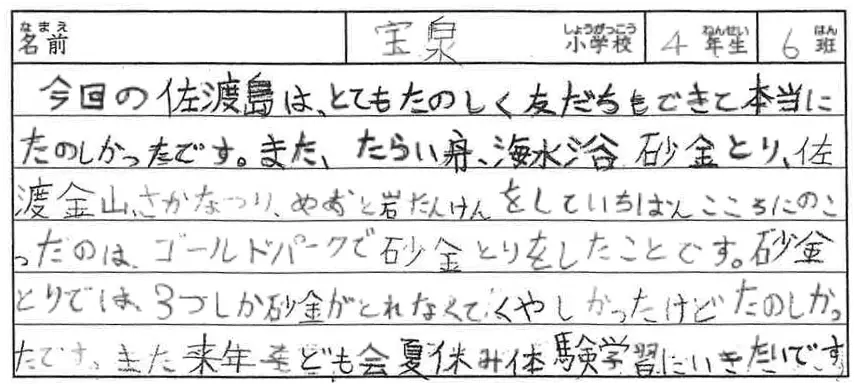 名前 なまえ 宝泉 小学校 しょうがっこう 4 年生 ねんせい 6 班 はん
今回の佐渡島は、とてもたのしく友だちもできて本当に
たのしかったです。また、たらい舟、海水浴、砂金とり、佐
渡金山、さかなつり、めおと岩たんけんをしていちばんこころにのこ
ったのは、ゴールドパークで砂金とりをしたことです。砂金
とりでは、3つしか砂金がとれなくてくやしかったけどたのしかっ
たです。また来年子ども会夏休み体験学習にいきたいです